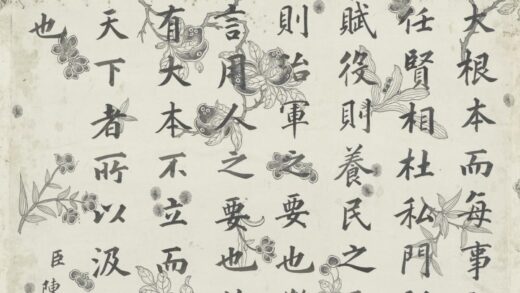 大根本而每事
任賢相杜私門
賦役則養民之
則治軍之要也
言用人之要也
有大本不立而
天下者所以汲
也
臣陳